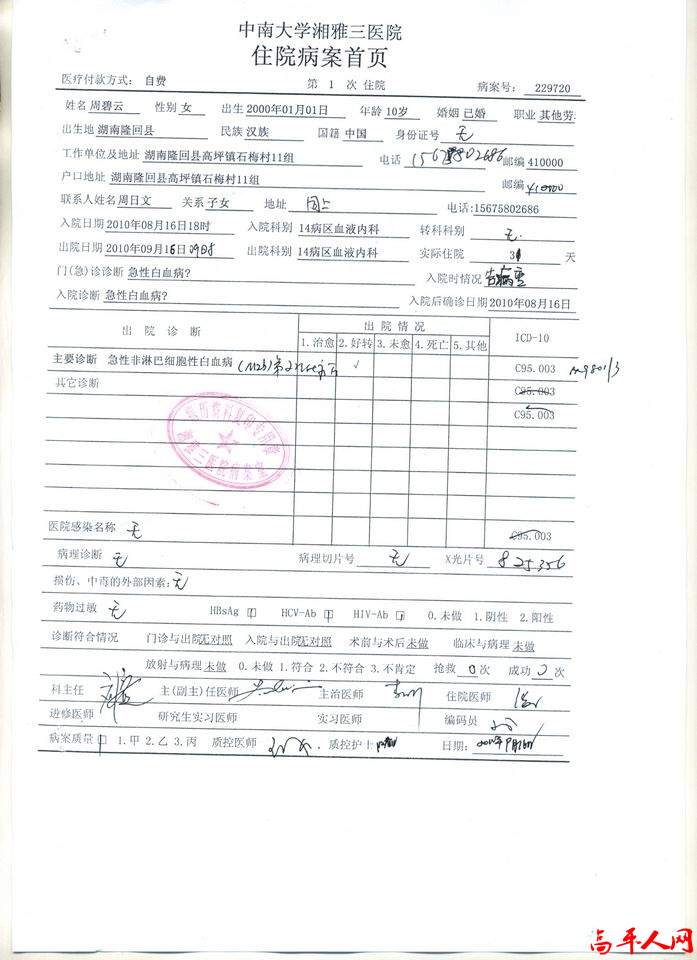 中南大学湘雅三医院
住院病案首页
医疗付款方式: 自费 第 1 次 住院 病案号: 229720
姓名 周碧云 性别 女 出生 2000年01月01日 年龄 10岁 婚姻 已婚 职业 其他劳
出生地 湖南隆回县 民族 汉族 国籍 中国 身份证号 无
工作单位及地址 湖南隆回县高坪镇石梅村11组 电话 15675802686 邮编 410000
户口地址 湖南隆回县高坪镇石梅村11组 邮编 410000
联系人姓名 周日文 关系 子女 地址 同上 电话:15675802686
入院日期 2010年08月16日18时 入院科别 14病区血液内科 转科科别 无
出院日期 2010年09月16日09时 出院科别 14病区血液内科 实际住院 31 天
门(急)诊诊断 急性白血病? 入院时情况
入院诊断 急性白血病? 入院后确诊日期 2010年08月16日
出 院 诊 断 出 院 情 况 ICD-10
1.治愈 2.好转 3.未愈 4.死亡 5.其他
主要诊断 急性非淋巴细胞性白血病 (M2b) ✓ C95.003 M9801/3
其它诊断 C95.003
C95.003
医院感染名称 无 C95.003
病理诊断 无 病理切片号 无 X光片号 825356
损伤、中毒的外部因素:无
药物过敏 无 HBsAg HCV-Ab HIV-Ab 0.未做 1.阴性 2.阳性
诊断符合情况 门诊与出院无对照 入院与出院无对照 术前与术后未做 临床与病理 未做
放射与病理 未做 0.未做 1.符合 2.不符合 3.不肯定 抢救 0 次 成功 0 次
科主任 主(副主)任医师 主治医师 住院医师
进修医师 研究生实习医师 实习医师 编码员
病案质量 1.甲 2.乙 3.丙 质控医师 质控护士 日期:
高平人网